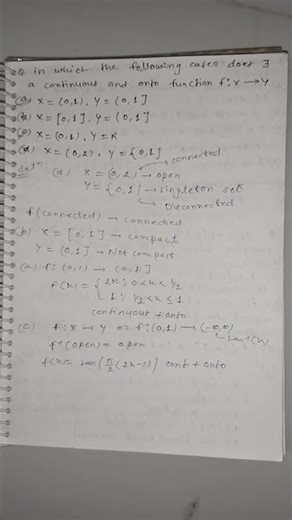 Q in which the following cases does ∃
a continuous and onto function f: X → Y
(a) X = (0,1), Y = (0,1]
(b) X = [0,1], Y = (0,1]
(c) X = (0,1), Y = R
(d) X = (0,2), Y = {0,1}
Solⁿ (d) X = (0,2) → open → connected
Y = {0,1} → singleton sets
→ Disconnected
f(connected) → connected
(b) X = [0,1] → compact
Y = (0,1] → Not compact
(a) f: (0,1) → (0,1]
f(x) = { 2x ; 0<x<1/2
1 ; 1/2<x≤1
continuous + onto
(c) f: X → Y ⇒ f: (0,1) → (-∞,∞)
tan⁻¹(x)
f⁻¹(open) = open
f(x) = tan(π/2 (2x-1)) cont + onto